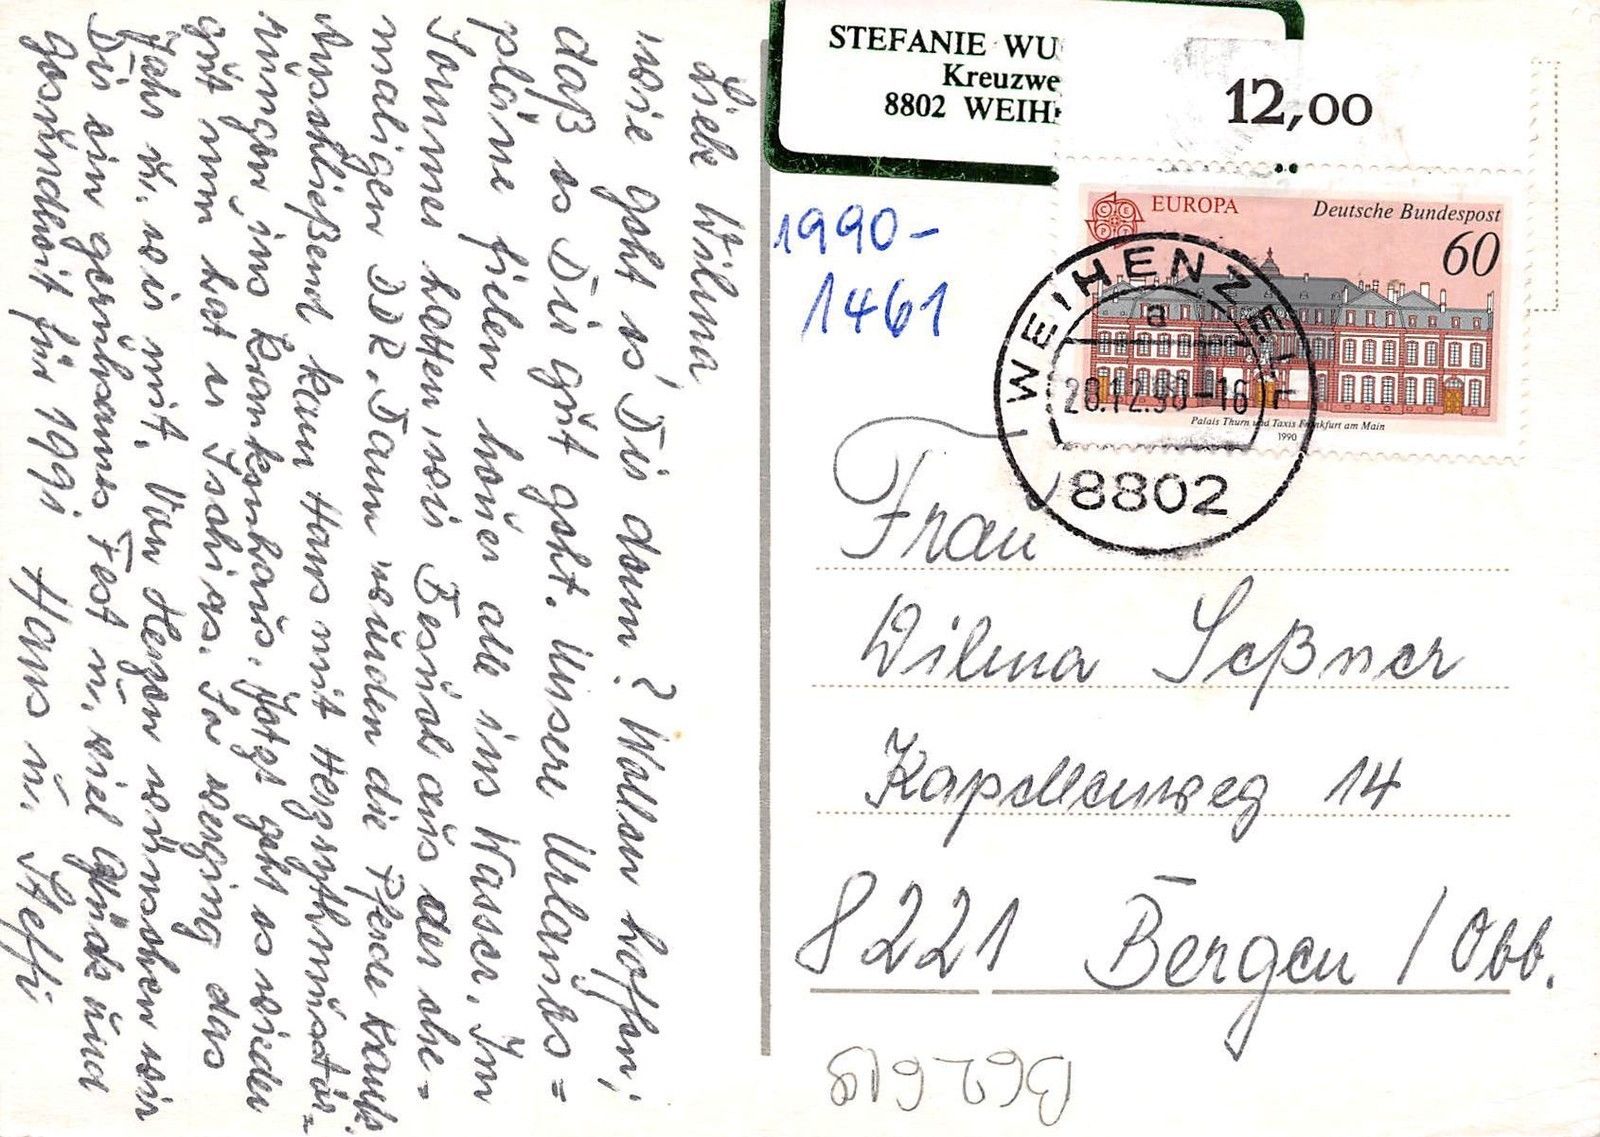 Liebe Wilma,
wie geht es Dir denn? Wollen hoffen,
daß es Dir gut geht. Unsere Urlaubs=
pläne fielen heuer alle ins Wasser. Im
Sommer hatten wir Besuch aus der ehe=
maligen DDR. Dann wurden die Pferde krank.
Anschließend kam Hans mit Herzrythmusstör=
ungen ins Krankenhaus. Jetzt geht es wieder
gut nun hat er Ischias. So verging das
Jahr u. wir mit. Von Herzen wünschen wir
Dir ein geruhsames Fest u. viel Glück und
Gesundheit für 1991. Hans u. Steffi
STEFANIE WU
Kreuzwe
8802 WEIH
12,00
1990-
1461
EUROPA
CEPT
Deutsche Bundespost
60
Palais Thurn und Taxis Frankfurt am Main
1990
WEIHENZELL
a
20.12.90-16
8802
Frau
Wilma Seßner
Kapellenweg 14
8221 Bergen / Obb.